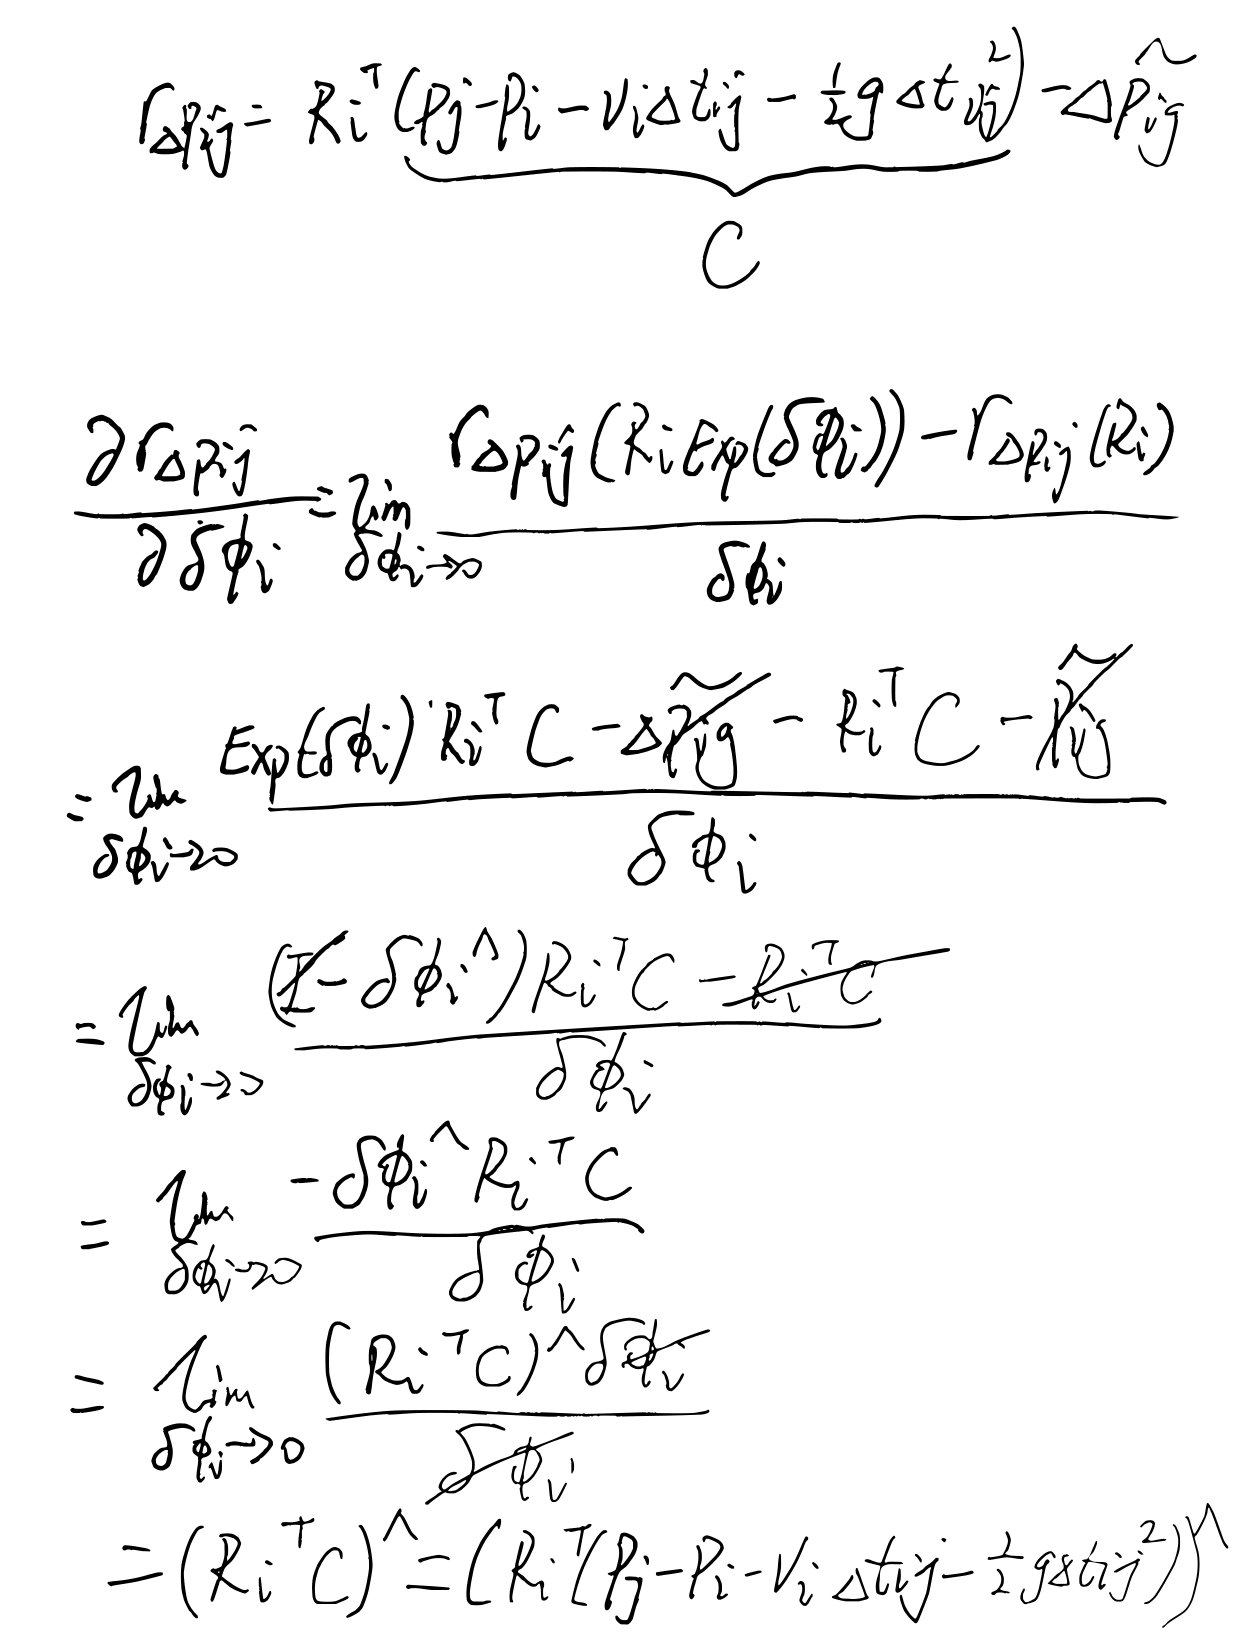 r_{Δp_{ij}} = R_i^T (p_j - p_i - v_i Δt_{ij} - \frac{1}{2} g Δt_{ij}^2) - Δ\tilde{p_{ij}}
C
\frac{∂ r_{Δp_{ij}}}{∂ δϕ_i} = \lim_{δϕ_i → 0} \frac{r_{Δp_{ij}}(R_i Exp(δϕ_i)) - r_{Δp_{ij}}(R_i)}{δϕ_i}
= \lim_{δϕ_i → 0} \frac{Exp(δϕ_i) R_i^T C - Δ\tilde{p_{ij}} - R_i^T C - \tilde{p_{ij}}}{δϕ_i}
= \lim_{δϕ_i → 0} \frac{(I - δϕ_i^∧) R_i^T C - R_i^T C}{δϕ_i}
= \lim_{δϕ_i → 0} \frac{-δϕ_i^∧ R_i^T C}{δϕ_i}
= \lim_{δϕ_i → 0} \frac{(R_i^T C)^∧ δϕ_i}{δϕ_i}
= (R_i^T C)^∧ = (R_i^T (p_j - p_i - v_i Δt_{ij} - \frac{1}{2} g Δt_{ij}^2))^∧